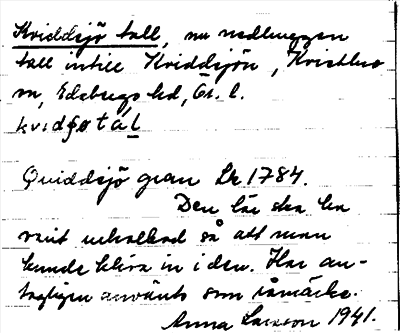 Kviddsjö tall, nu nedhuggen
tall intill Kviddsjön, Kristbergs
sn, Edsbergs hd, Ör. l.
kvidʂøtál
Qviddsjö gran Lk 1784.
Den lär ska ha
varit urholkad så att man
kunde kliva in i den. Har an-
tagligen använts som råmärke.
Anna Larsson 1941.